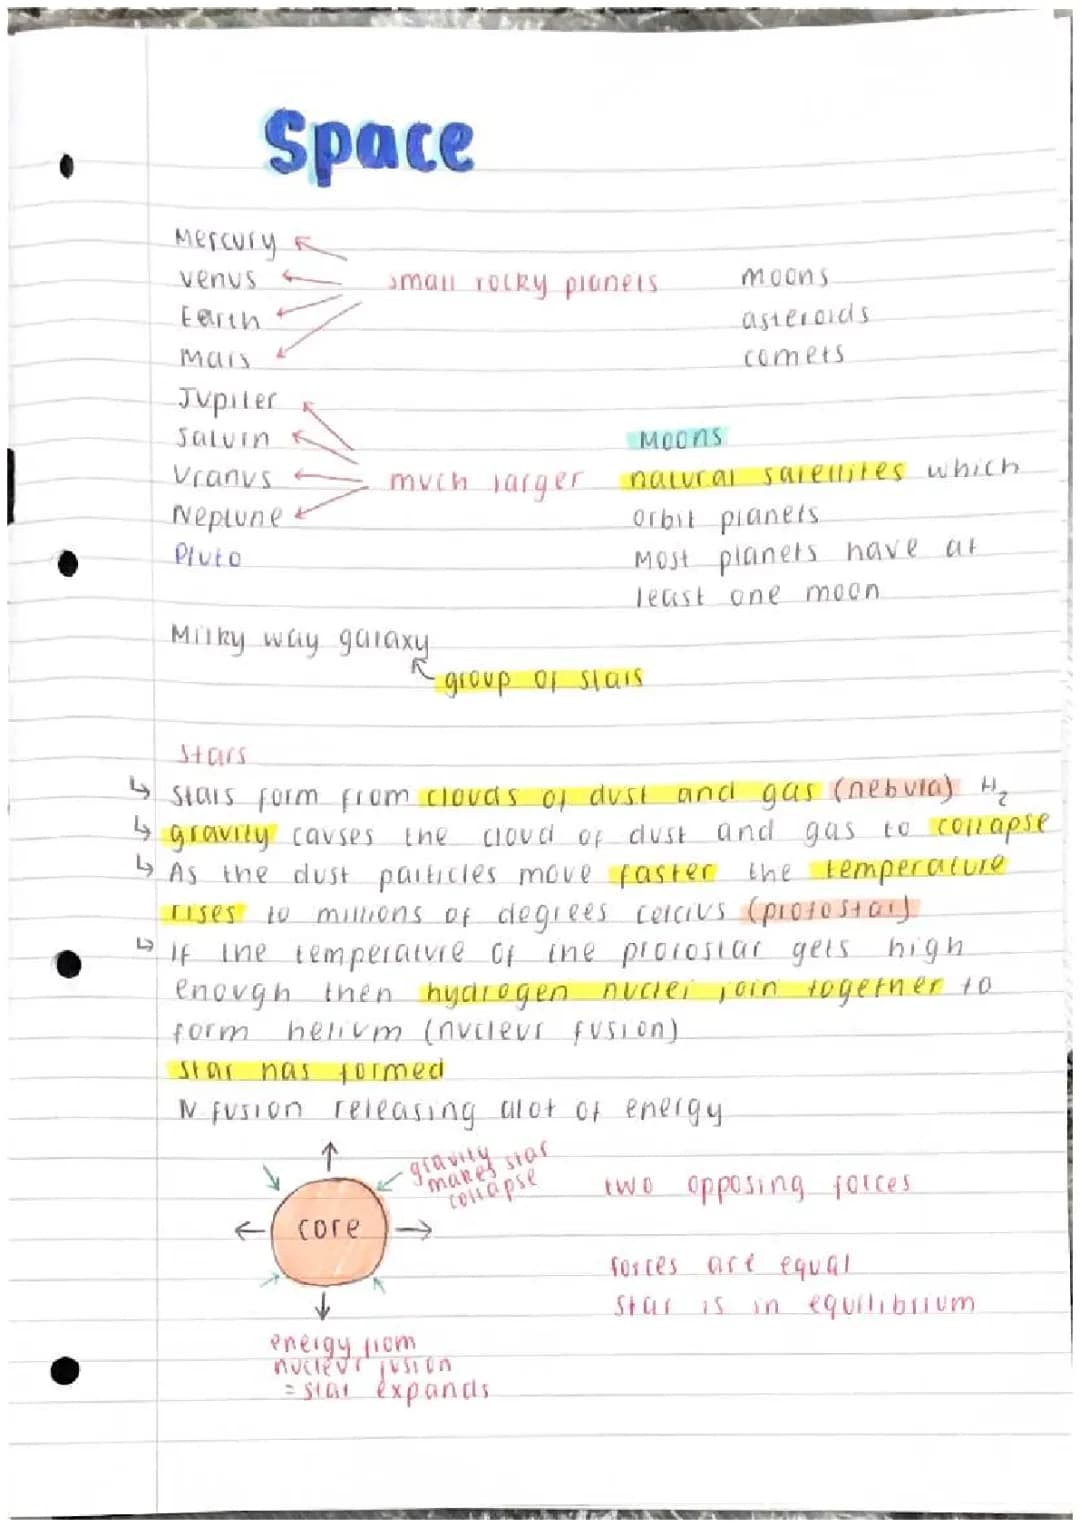 Space
Mercury
Venus
Earth
Mars
small rocky planets
moons
asteroids
comets
Jupiter
Saturn
Uranus
Neptune
much larger
Pluto
Moons
natural satellites which
orbit planets
Most planets have at
least one moon
Milky way galaxy
group of stars
Stars
↳ Stars form from clouds of dust and gas (nebula) H₂
↳ gravity causes the cloud of dust and gas to collapse
↳ As the dust particles move faster the temperature
rises to millions of degrees celcius (protostar)
↳ If the temperature of the protostar gets high
enough then hydrogen nuclei join together to
form helium (nucleur fusion)
star has formed
N fusion releasing alot of energy
gravity
makes star
collapse
core
energy from
nucleur fusion
= star expands
two opposing forces
forces are equal
Star is in equilibrium